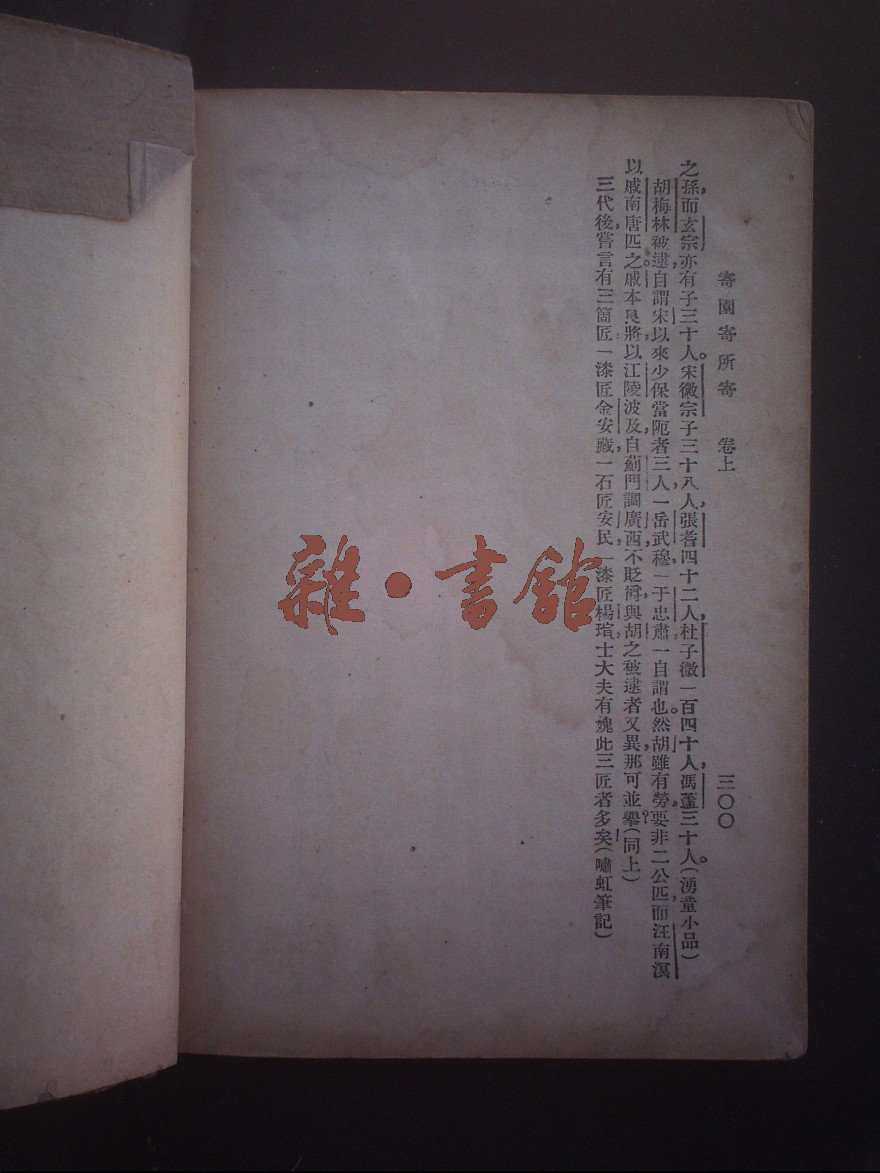 寄園寄所寄 卷上 三〇〇
之孫，而玄宗亦有子三十人。宋徽宗子三十八人，張耆四十二人，杜子微一百四十人，馮蓋三十人。(湧童小品)
胡梅林被逮，自謂宋以來少保當阨者三人，一岳武穆，一于忠肅，一自謂也。然胡雖有勞，要非二公匹，而汪南溟
以戚南唐匹之。戚本良將，以江陵波及，自薊門調廣西，不貶爵，與胡之被逮者又異，那可並舉？(同上)
三代後，嘗言有三箇匠，一漆匠金安藏，一石匠安民，一漆匠楊瑄，士大夫有媿此三匠者多矣！(嘯虹筆記)
雜·書館